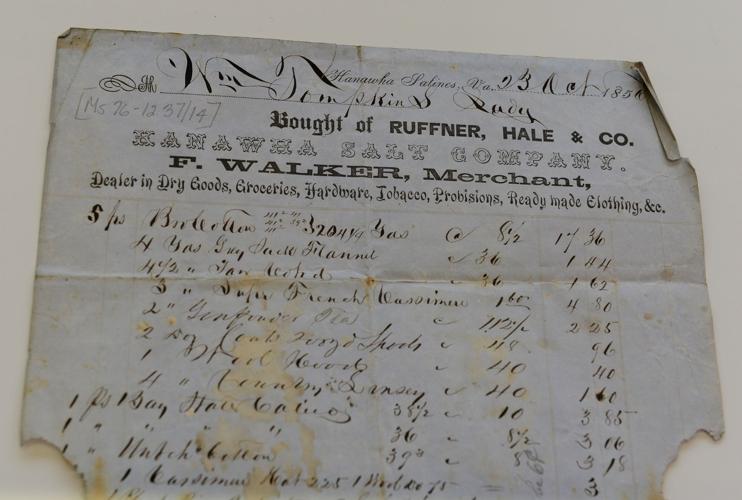 Kanawha Salines, Va. 23 Oct 185
Mr Wm Tompkins Lady
[Ms 76-1237/14]
Bought of RUFFNER, HALE & CO.
KANAWHA SALT COMPANY.
F. WALKER, Merchant,
Dealer in Dry Goods, Groceries, Hardware, Tobacco, Provisions, Ready made Clothing, &c.
5 ps Bro Cotton 204¼ Yds @ 8½ 17 36
4 Yds Gray Flannel " 36 1 44
4½ " " 36 1 62
3 " Super French Cassimere 1 60 4 80
2 " Gunpowder Tea " 112½ 2 25
2 Doz Coats Thread Spools " 48 96
1 Wool Hood " 40 40
4 " Country Linsey " 40 1 60
1 ps Bay State Calico 38½ " 10 3 85
1 " " " " 36 " 8½ 3 06
1 " Cotton 39³ " 8 3 18
1 Cassimere Hat 225 1 75 3